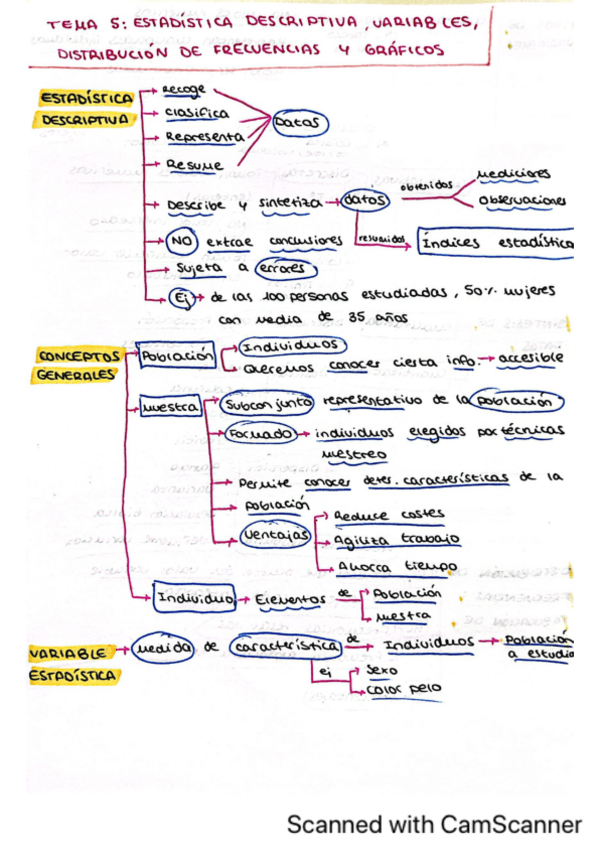 TEMA 5: ESTADÍSTICA DESCRIPTIVA, VARIABLES,
DISTRIBUCIÓN DE FRECUENCIAS Y GRÁFICOS
ESTADÍSTICA
DESCRIPTIVA
Recoge
Clasifica
Representa
Resume
Datos
Describe y sintetiza → datos
obtenidos
Mediciones
Observaciones
NO extrae conclusiones
resumidos
Índices estadística
Sujeta a errores
Ej → de las 100 personas estudiadas, 50% mujeres
con media de 35 años
CONCEPTOS
GENERALES
Población
Individuos
Queremos conocer cierta info. → accesible
Muestra
Subconjunto representativo de la población
Formado → individuos elegidos por técnicas
muestreo
Permite conocer deter. características de la
Población
Ventajas
Reduce costes
Agiliza trabajo
Ahorra tiempo
Individuo → Elementos de
Población
Muestra
VARIABLE
ESTADÍSTICA
→ medida de característica de → Individuos → Población
a estudia
ej
Sexo
Color pelo
Scanned with CamScanner